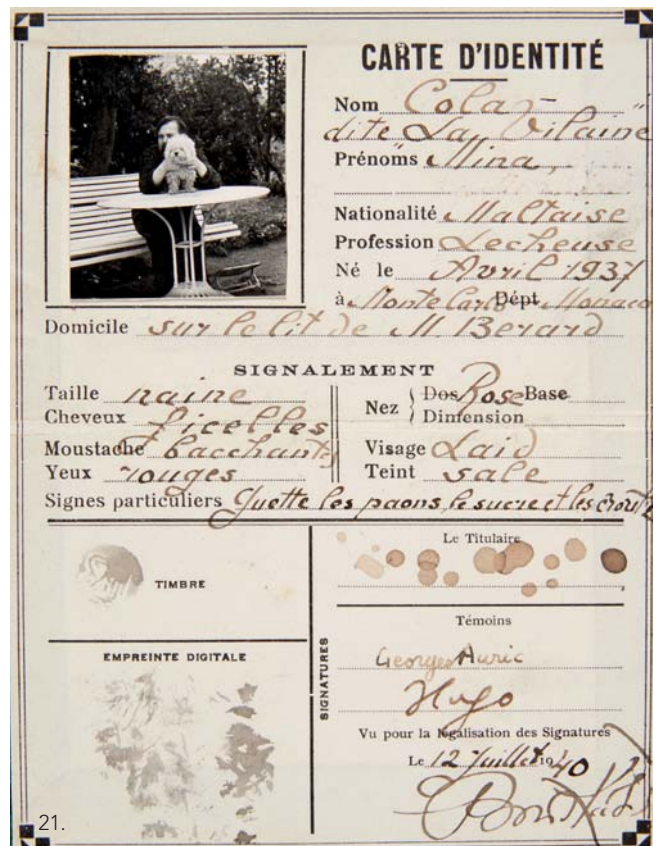 CARTE D'IDENTITÉ
Nom Colas
dite La Vilaine
Prénoms Mina
Nationalité Maltaise
Profession Lecheuse
Né le Avril 1937
à Monte Carlo Dépt Monaco
Domicile sur le lit de M. Berard
SIGNALEMENT
Taille naine
Cheveux ficelles
Moustache bacchantes
Yeux rouges
Nez Dos Rose Base
Dimension
Visage Laid
Teint sale
Signes particuliers guette les paons, le sucre et les croutes
TIMBRE
EMPREINTE DIGITALE
SIGNATURES
Le Titulaire
Témoins
Georges Auric
Hugo
Vu pour la légalisation des Signatures
Le 12 Juillet 1940
21.